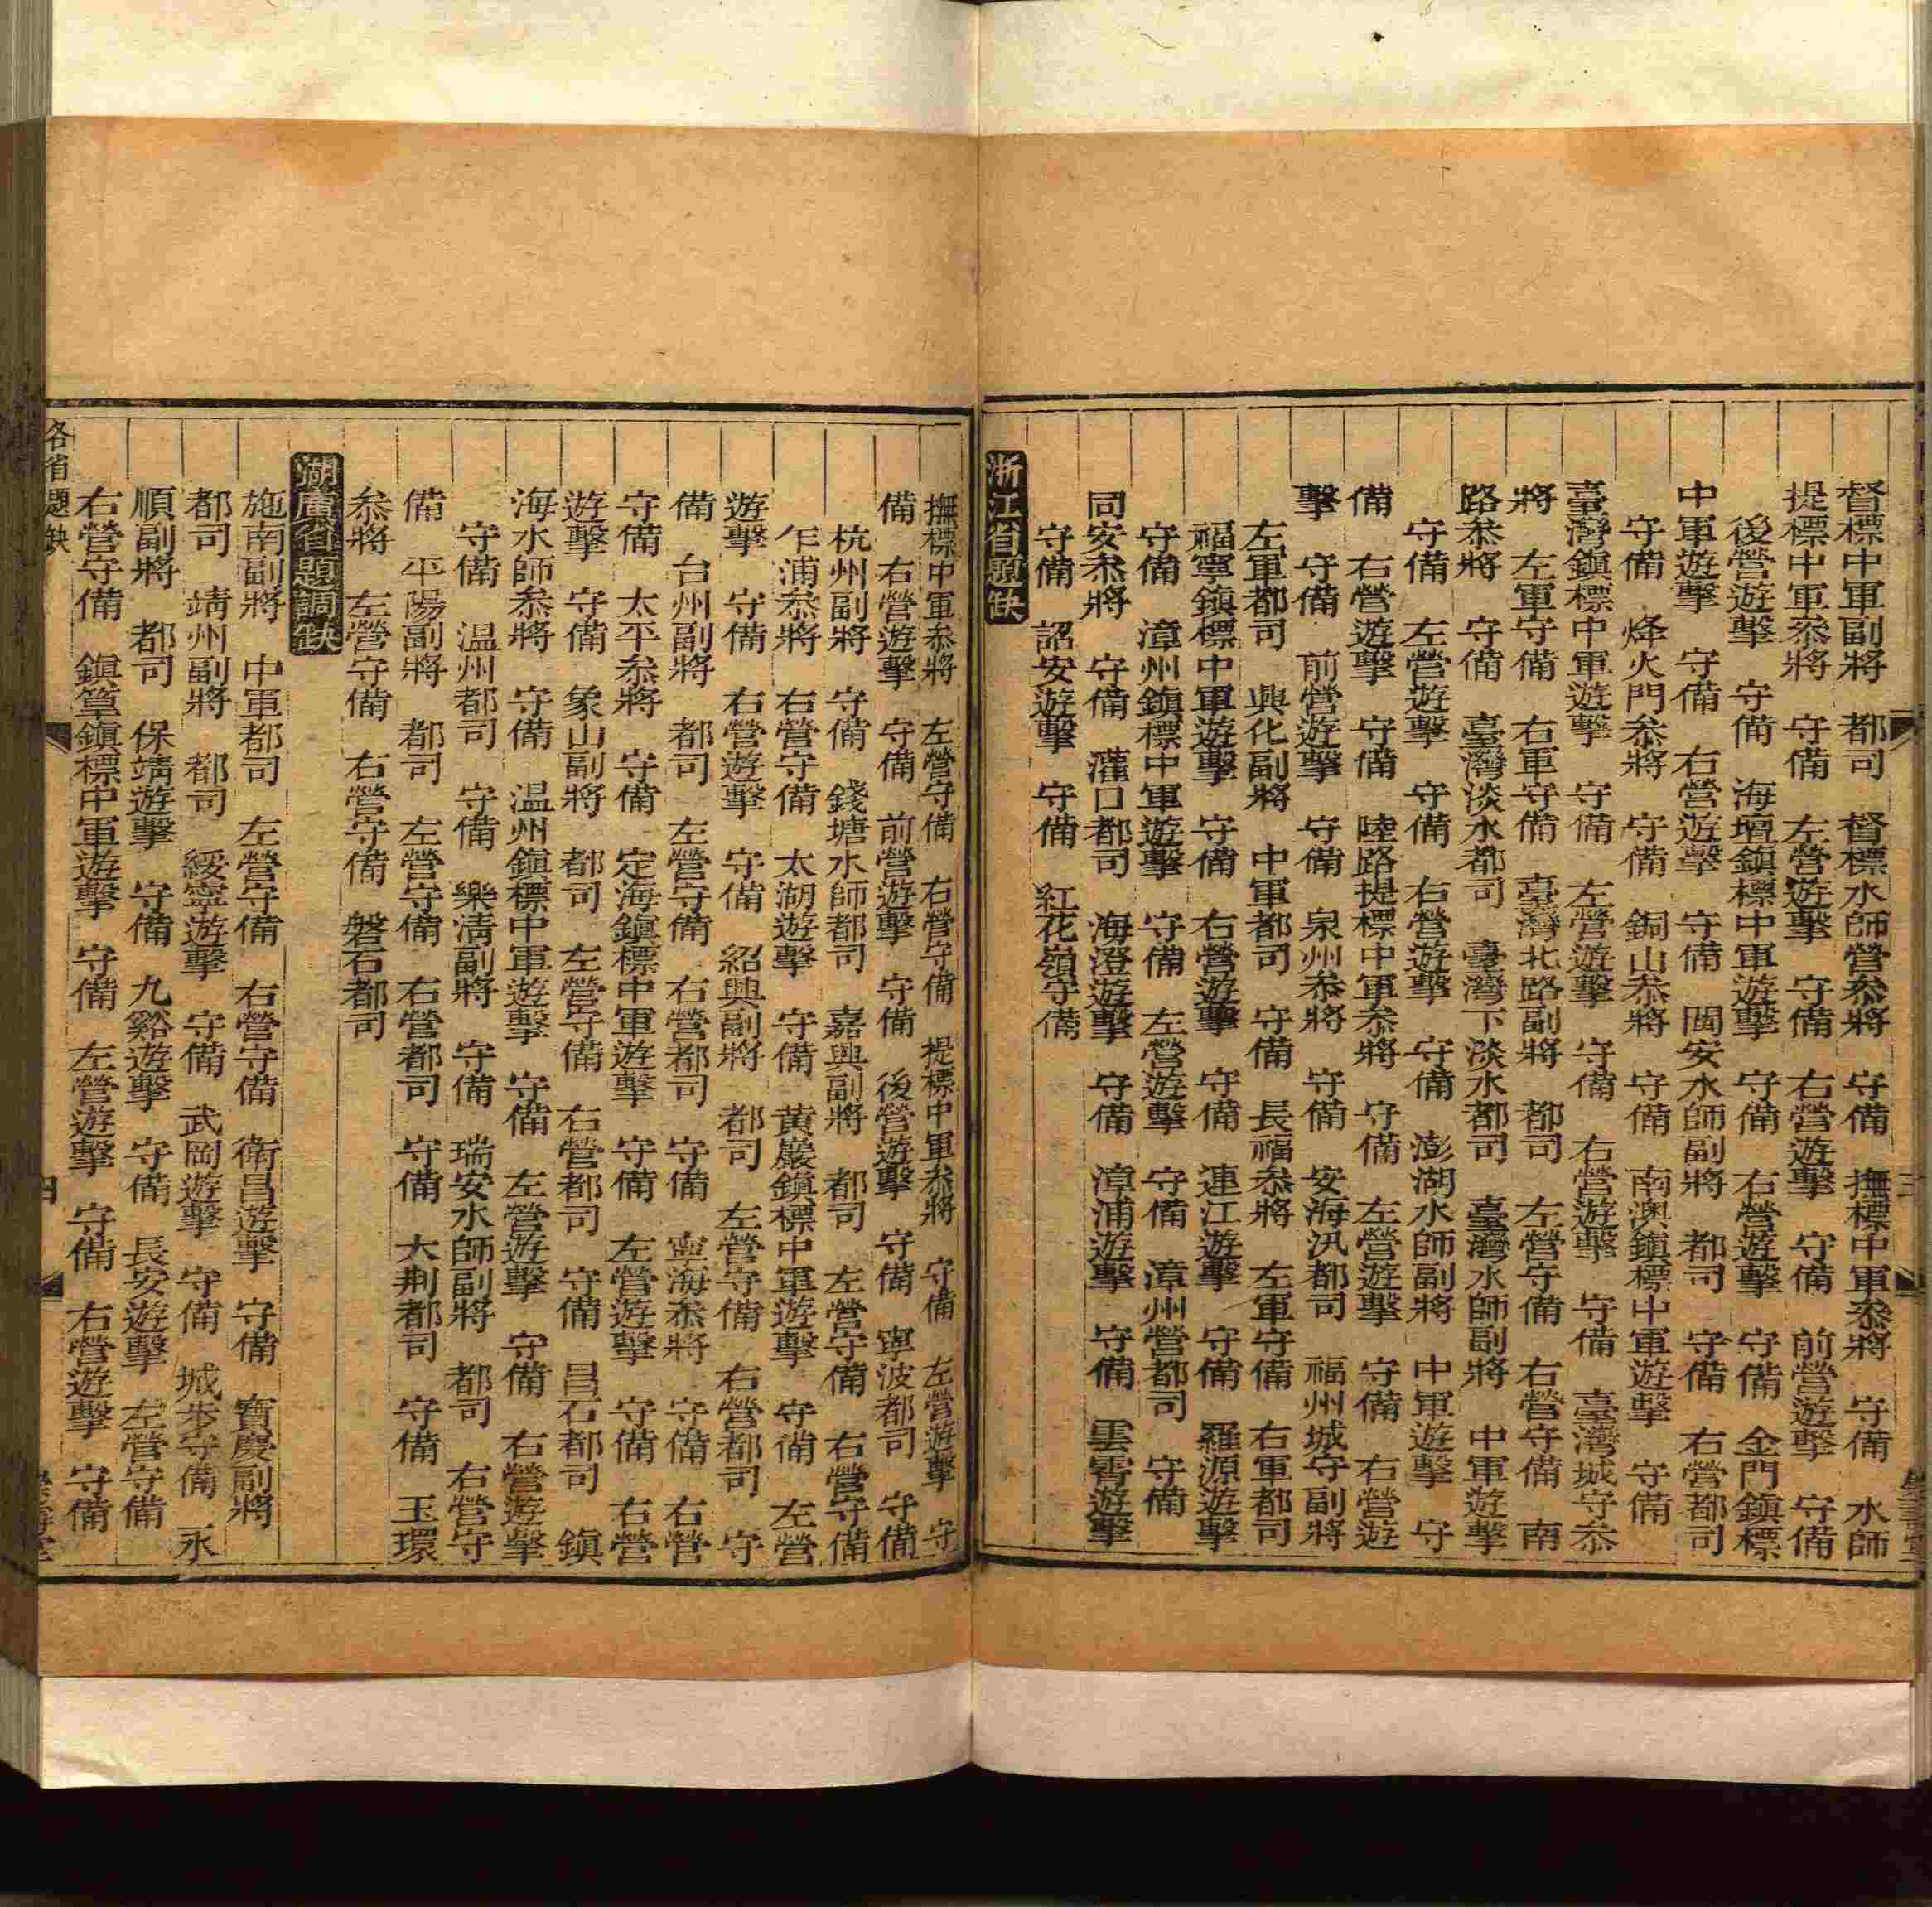 督標中軍副將　都司　督標水師營叅將　守備　撫標中軍叅將　守備　水師
提標中軍叅將　守備　左營遊擊　守備　右營遊擊　守備　前營遊擊　守備
後營遊擊　守備　海壇鎮標中軍遊擊　守備　右營遊擊　守備　金門鎮標
中軍遊擊　守備　右營遊擊　守備　閩安水師副將　都司　守備　右營都司
守備　烽火門叅將　守備　銅山叅將　守備　南澳鎮標中軍遊擊　守備
臺灣鎮標中軍遊擊　守備　左營遊擊　守備　右營遊擊　守備　臺灣城守叅
將　左軍守備　右軍守備　臺灣北路副將　都司　左營守備　右營守備　南
路叅將　守備　臺灣淡水都司　臺灣下淡水都司　臺灣水師副將　中軍遊擊
守備　左營遊擊　守備　右營遊擊　守備　澎湖水師副將　中軍遊擊　守
備　右營遊擊　守備　陸路提標中軍叅將　守備　左營遊擊　守備　右營遊
擊　守備　前營遊擊　守備　泉州叅將　守備　安海汛都司　福州城守副將
左軍都司　興化副將　中軍都司　守備　長福叅將　左軍守備　右軍都司
福寧鎮標中軍遊擊　守備　右營遊擊　守備　連江遊擊　守備　羅源遊擊
守備　漳州鎮標中軍遊擊　守備　左營遊擊　守備　漳州營都司　守備
同安叅將　守備　灌口都司　海澄遊擊　守備　漳浦遊擊　守備　雲霄遊擊
守備　詔安遊擊　守備　紅花嶺守備
浙江省題缺
撫標中軍叅將　左營守備　右營守備　提標中軍叅將　守備　左營遊擊　守
備　右營遊擊　守備　前營遊擊　守備　後營遊擊　守備　寧波都司　守備
杭州副將　守備　錢塘水師都司　嘉興副將　都司　左營守備　右營守備
乍浦叅將　右營守備　太湖遊擊　守備　黃巖鎮標中軍遊擊　守備　左營
遊擊　守備　右營遊擊　守備　紹興副將　都司　左營守備　右營都司　守
備　台州副將　都司　左營守備　右營都司　守備　寧海叅將　守備　右營
守備　太平叅將　守備　定海鎮標中軍遊擊　守備　左營遊擊　守備　右營
遊擊　守備　象山副將　都司　左營守備　右營都司　守備　昌石都司　鎮
海水師叅將　守備　溫州鎮標中軍遊擊　守備　左營遊擊　守備　右營遊擊
守備　溫州都司　守備　樂清副將　守備　瑞安水師副將　都司　右營守
備　平陽副將　都司　左營守備　右營都司　守備　大荆都司　守備　玉環
叅將　左營守備　右營守備　磐石都司
湖廣省題調缺
施南副將　中軍都司　左營守備　右營守備　衛昌遊擊　守備　寶慶副將
都司　靖州副將　都司　綏寧遊擊　守備　武岡遊擊　守備　城步守備　永
順副將　都司　保靖遊擊　守備　九谿遊擊　守備　長安遊擊　左營守備
右營守備　鎮筸鎮標中軍遊擊　守備　左營遊擊　守備　右營遊擊　守備
各省題缺
四